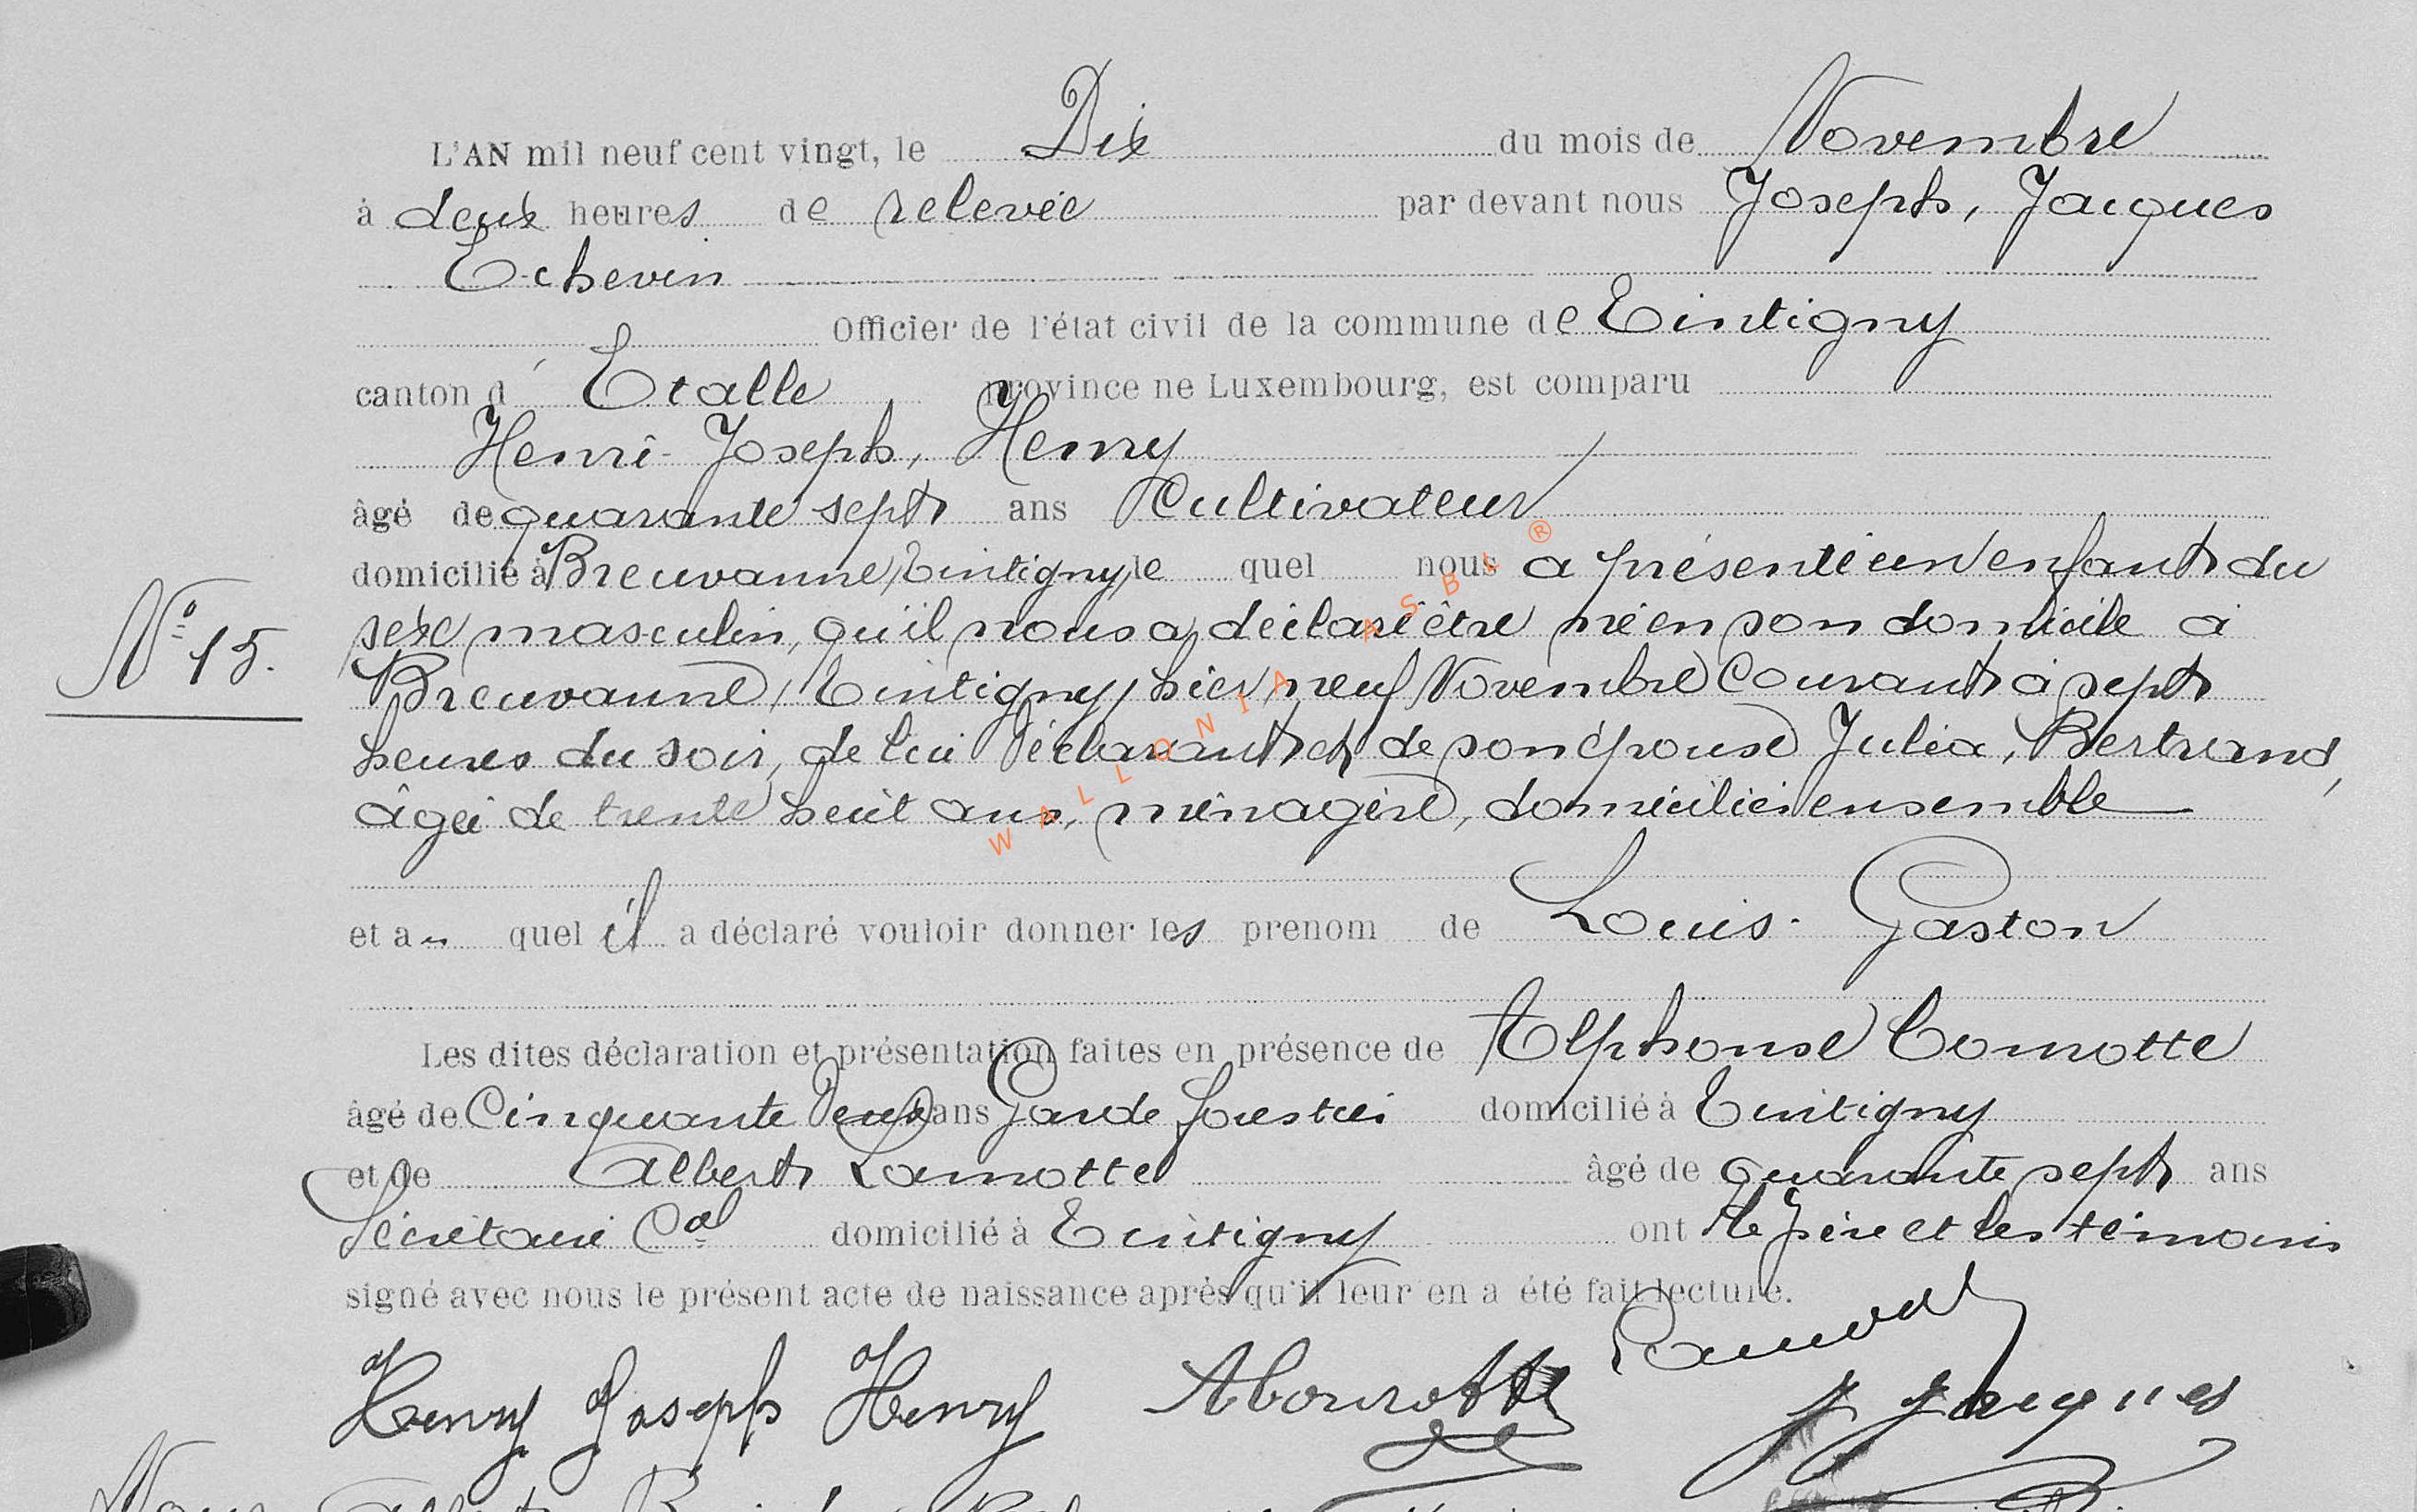 L'AN mil neuf cent vingt, le Dix du mois de Novembre
à deux heures de relevée par devant nous Joseph, Jacques
Echevin
Officier de l'état civil de la commune de Tintigny
canton d'Etalle province ne Luxembourg, est comparu
Henri-Joseph, Henry
âgé de quarante sept ans Cultivateur
domicilié à Breuvanne, Tintigny, le quel nous a présenté un enfant du
N° 15.
sexe masculin, qu'il nous a déclaré être né en son domicile à
Breuvanne, Tintigny, hier neuf Novembre Courant à sept
heures du soir, de lui Déclarant et de son épouse Julia, Bertrand,
âgée de trente huit ans, ménagère, domiciliés ensemble
et a u quel il a déclaré vouloir donner les prenom de Louis-Gaston
Les dites déclaration et présentation faites en présence de Alphonse Comotte
âgé de Cinquante Deux ans Garde forestier domicilié à Tintigny
et de Albert Lamotte âgé de Quarante sept ans
Secrétaire Cal domicilié à Tintigny ont le père et les témoins
signé avec nous le présent acte de naissance après qu'il leur en a été fait lecture.
Henry Joseph Henry J Jacques
WALLONIA ASBL ®